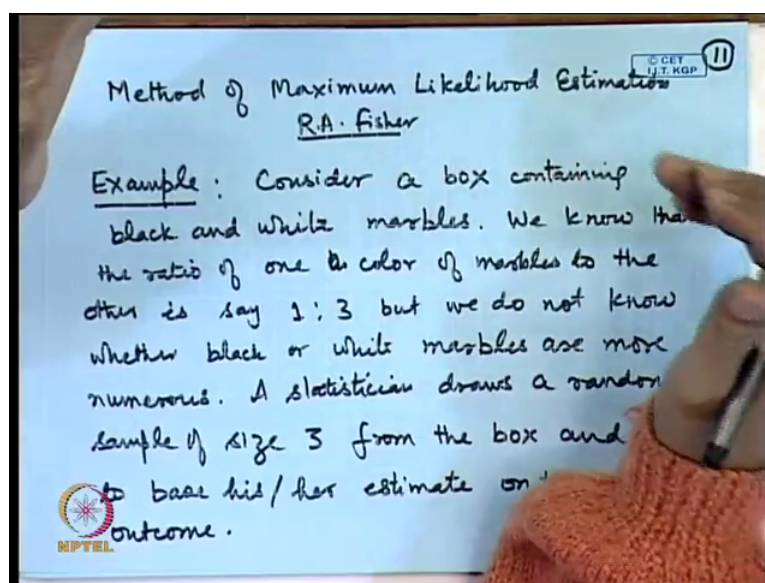 © CET
I.I.T. KGP
11
Method of Maximum Likelihood Estimation
R.A. Fisher
Example : Consider a box containing
black and white marbles. We know that
the ratio of one color of marbles to the
other is say 1 : 3 but we do not know
whether black or white marbles are more
numerous. A statistician draws a random
sample of size 3 from the box and
to base his / her estimate on
outcome.
NPTEL